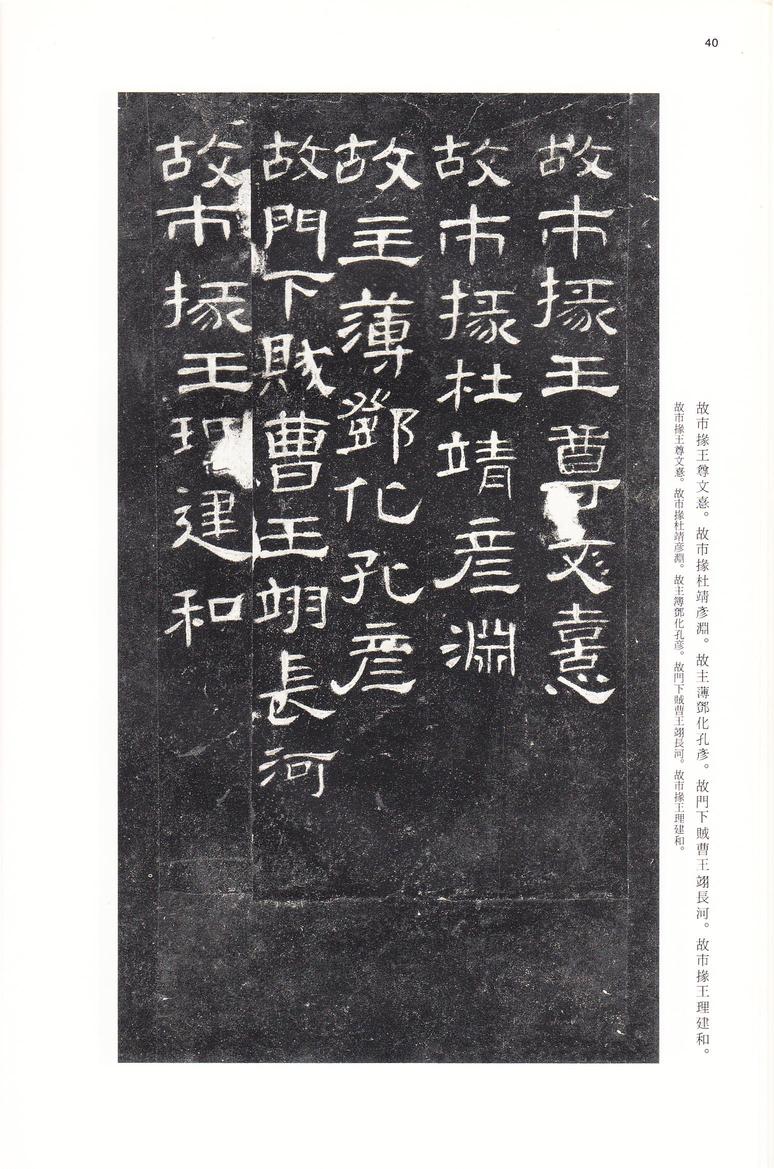 40
故市掾王尊文憙。故市掾杜靖彥淵。故主薄鄧化孔彥。故門下賊曹王翊長河。故市掾王理建和。
故市掾王尊文憙。故市掾杜靖彦淵。故主簿鄧化孔彦。故門下賊曹王翊長河。故市掾王理建和。
故市掾王尊文憙
故市掾杜靖彥淵
故主薄鄧化孔彥
故門下賊曹王翊長河
故市掾王理建和